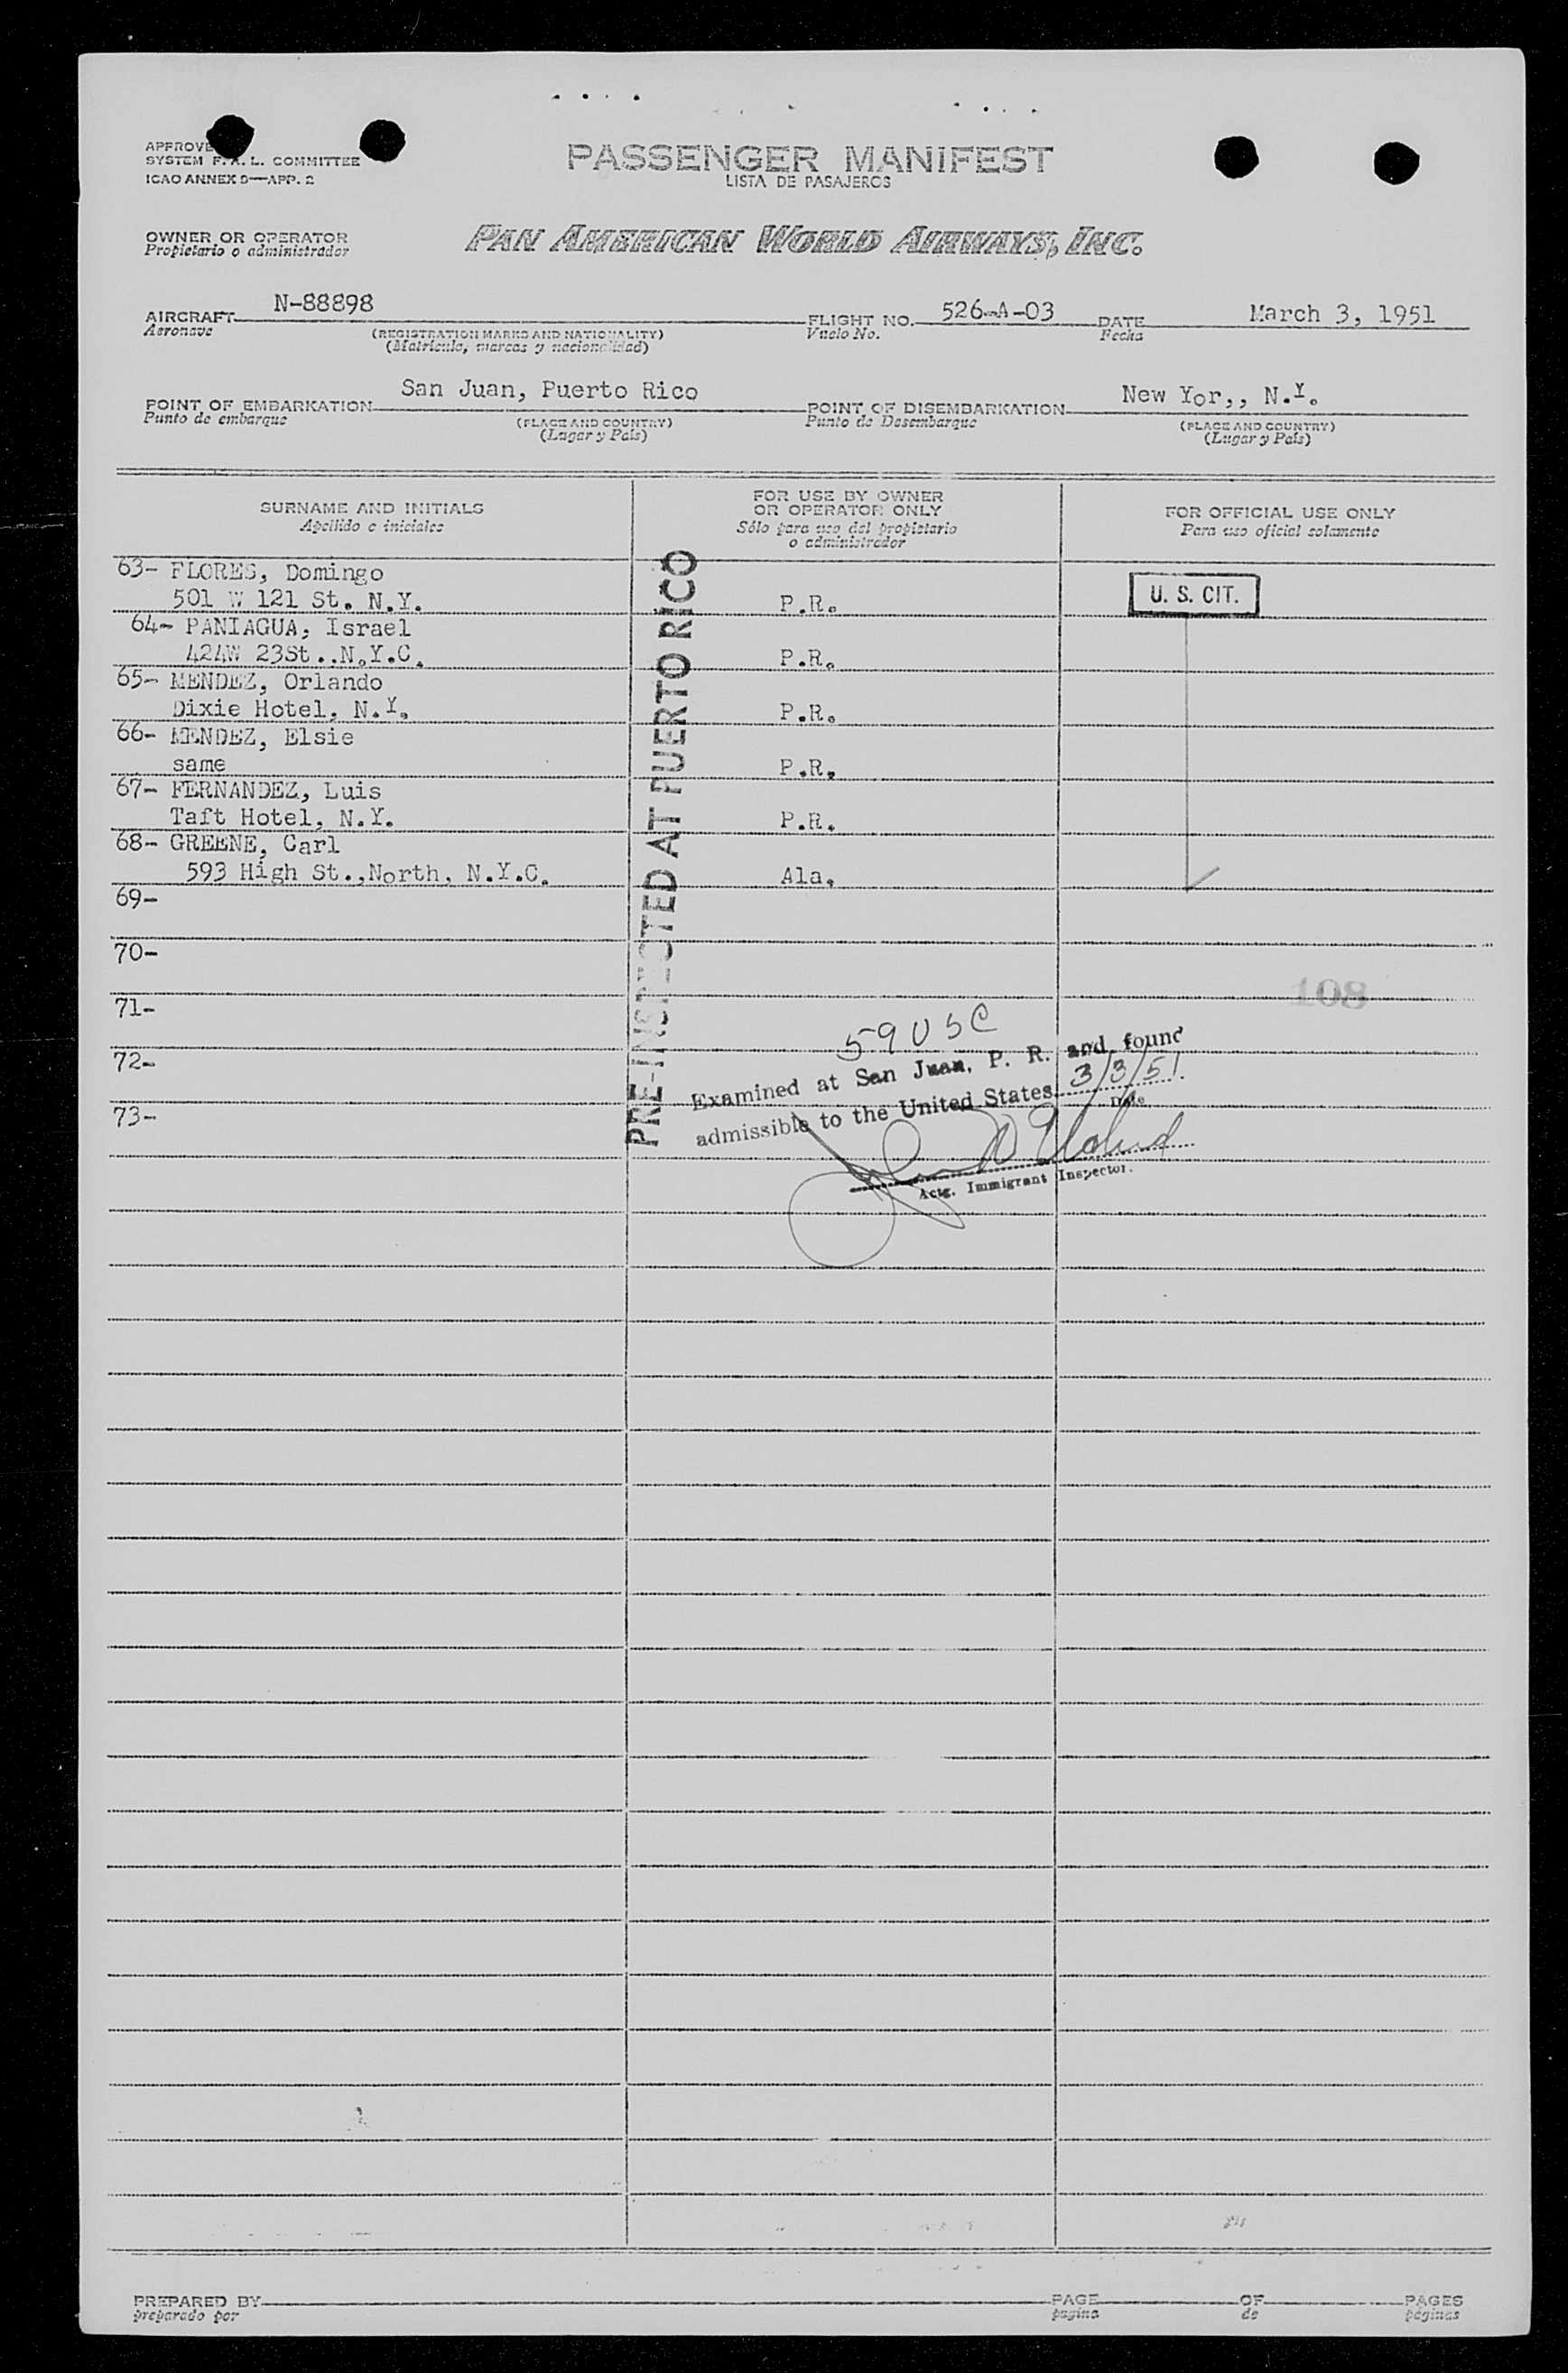 APPROVE
SYSTEM F.A.L. COMMITTEE
ICAO ANNEX 9—APP. 2
PASSENGER MANIFEST
LISTA DE PASAJEROS
OWNER OR OPERATOR
Propietario o administrador
PAN AMERICAN WORLD AIRWAYS, INC.
AIRCRAFT N-88898
Aeronave
(REGISTRATION MARKS AND NATIONALITY)
(Matricula, marcas y nacionalidad)
FLIGHT NO. 526-A-03
Vuelo No.
DATE March 3, 1951
Fecha
POINT OF EMBARKATION San Juan, Puerto Rico
Punto de embarque
(PLACE AND COUNTRY)
(Lugar y País)
POINT OF DISEMBARKATION New Yor,, N.Y.
Punto de Desembarque
(PLACE AND COUNTRY)
(Lugar y País)
SURNAME AND INITIALS
Apellido e iniciales
FOR USE BY OWNER
OR OPERATOR ONLY
Sólo para uso del propietario
o administrador
FOR OFFICIAL USE ONLY
Para uso oficial solamente
63- FLORES, Domingo
501 W 121 St. N.Y. P.R. U. S. CIT.
64- PANIAGUA, Israel
424W 23St..N.Y.C. P.R.
65- MENDEZ, Orlando
Dixie Hotel, N.Y. P.R.
66- MENDEZ, Elsie
same P.R.
67- FERNANDEZ, Luis
Taft Hotel, N.Y. P.R.
68- GREENE, Carl
593 High St.,North, N.Y.C. Ala.
69-
70-
71-
72-
73-
PRE-INSPECTED AT PUERTO RICO
108
59 USC
Examined at San Juan, P. R. and found
admissible to the United States 3/3/51
Date
Actg. Immigrant Inspector.
PREPARED BY
preparado por
PAGE OF PAGES
pagina de páginas